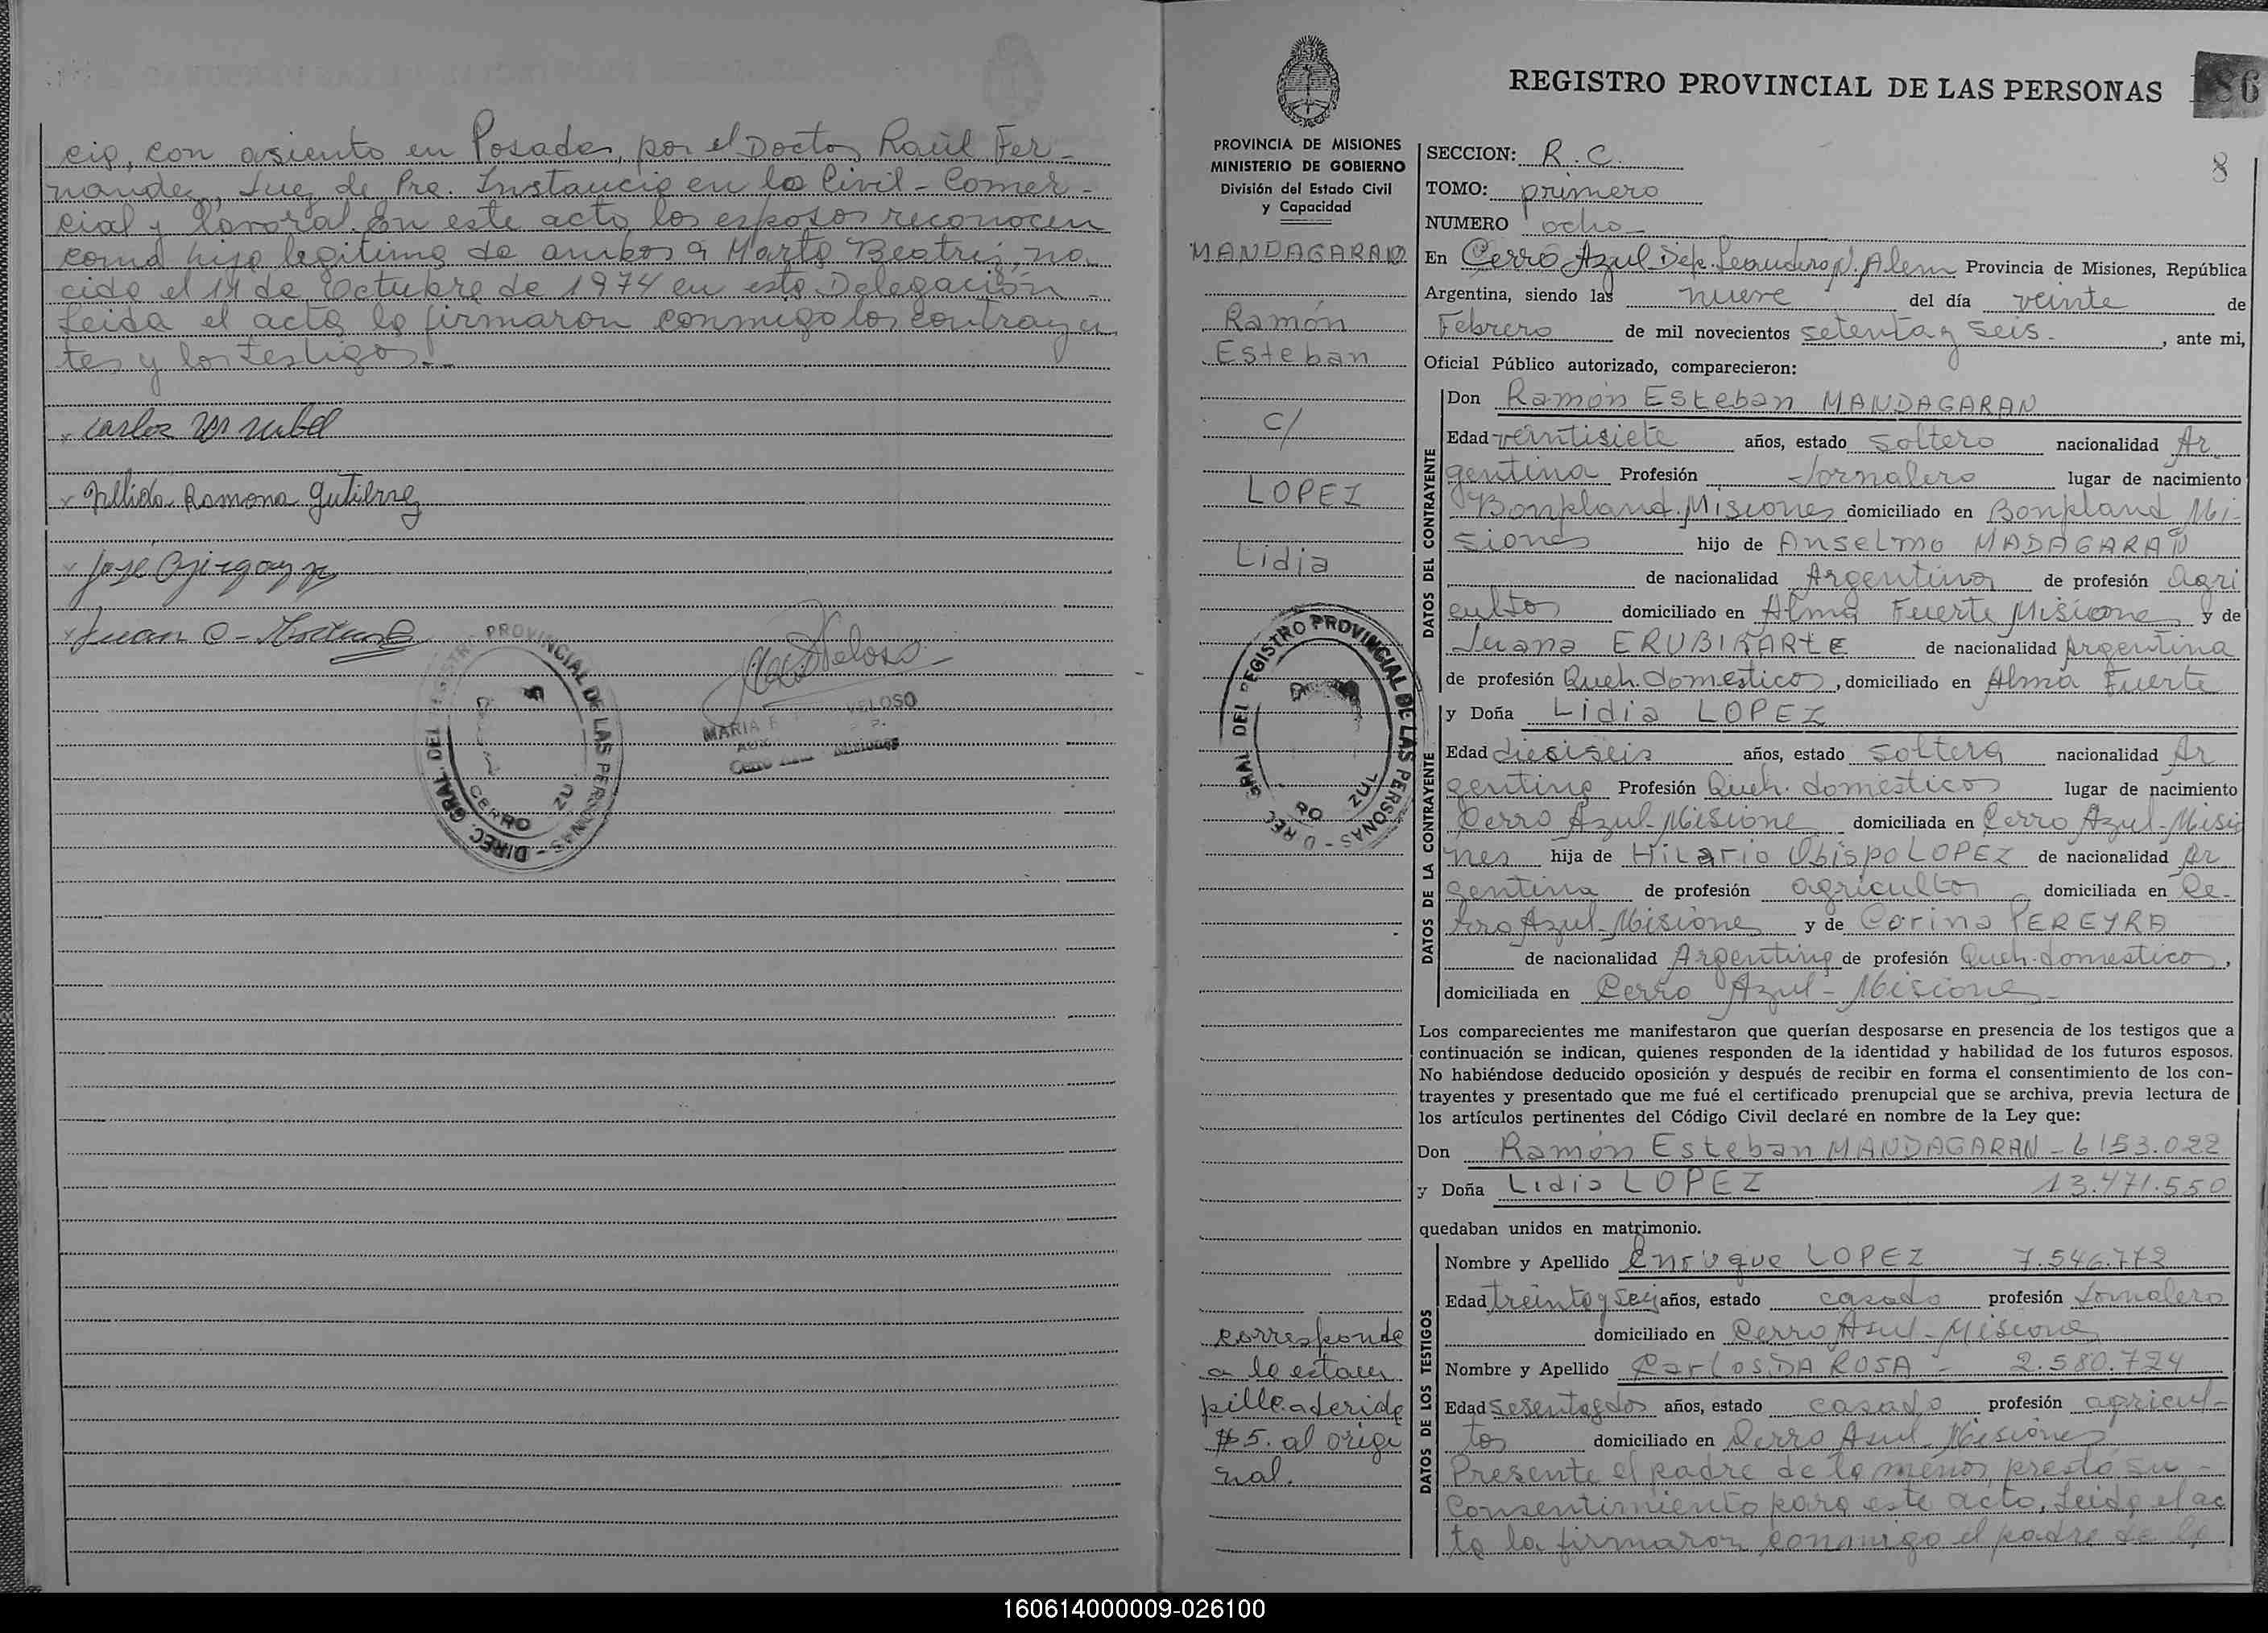 cio, con asiento en Posadas, por el Doctor Raúl Fer-
nandez, Juez de Pra. Instancia en lo Civil - Comer-
cial y Laboral. En este acto los esposos reconocen
como hija legitima de ambos a Marta Beatriz, na
cida el 14 de Octubre de 1974 en esta Delegación -
Leida el acta la firmaron conmigo los contrayen
tes y los testigos.-
Carlos
Nellida Ramona Gutierrez
Jose
Juan C.
DIREC. GRAL. DEL REGISTRO PROVINCIAL DE LAS PERSONAS
CERRO AZUL
Veloso
MARIA E VELOSO
Cerro Azul Misiones
REGISTRO PROVINCIAL DE LAS PERSONAS
186
8
PROVINCIA DE MISIONES
MINISTERIO DE GOBIERNO
División del Estado Civil
y Capacidad
MANDAGARAN
Ramón
Esteban
c/
LOPEZ
Lidia
DIREC. GRAL. DEL REGISTRO PROVINCIAL DE LAS PERSONAS
corresponde
a la estam
pilla aderida
$ 5. al origi
nal.
SECCION: R.C.
TOMO: primero
NUMERO ocho
En Cerro Azul Dep. Leandro N. Alem Provincia de Misiones, República
Argentina, siendo las nueve del día veinte de
Febrero de mil novecientos setenta y seis. , ante mi,
Oficial Público autorizado, comparecieron:
DATOS DEL CONTRAYENTE
Don Ramón Esteban MANDAGARAN
Edad veintisiete años, estado soltero nacionalidad Ar
gentina Profesión Jornalero lugar de nacimiento
Bonpland. Misiones domiciliado en Bonpland Mi-
siones hijo de Anselmo MADAGARAN
de nacionalidad Argentina de profesión Agri
cultor domiciliado en Alma Fuerte Misiones y de
Juana ERUBIKARTE de nacionalidad Argentina
de profesión Queh. domesticos, domiciliado en Alma Fuerte
DATOS DE LA CONTRAYENTE
y Doña Lidia LOPEZ
Edad diesiseis años, estado soltera nacionalidad Ar
gentina Profesión Queh. domesticos lugar de nacimiento
Cerro Azul-Misiones domiciliada en Cerro Azul-Misio
nes hija de Hilario Obispo LOPEZ de nacionalidad Ar
gentina de profesión agricultor domiciliada en Ce-
rro Azul-Misiones y de Corina PEREYRA
de nacionalidad Argentina de profesión Queh. domesticos,
domiciliada en Cerro Azul - Misiones-
Los comparecientes me manifestaron que querían desposarse en presencia de los testigos que a
continuación se indican, quienes responden de la identidad y habilidad de los futuros esposos.
No habiéndose deducido oposición y después de recibir en forma el consentimiento de los con-
trayentes y presentado que me fué el certificado prenupcial que se archiva, previa lectura de
los artículos pertinentes del Código Civil declaré en nombre de la Ley que:
Don Ramón Esteban MANDAGARAN - 6153.022
y Doña Lidia LOPEZ 13.471.550
quedaban unidos en matrimonio.
DATOS DE LOS TESTIGOS
Nombre y Apellido Enrique LOPEZ 7.546.772
Edad treinta y seis años, estado casado profesión Jornalero
domiciliado en Cerro Azul - Misiones
Nombre y Apellido Carlos DA ROSA - 2.580.724
Edad sesenta y dos años, estado casado profesión agricul-
tor domiciliado en Cerro Azul-Misiones
Presente el padre de la menor presto su -
Consentimiento para este acto, Leida el ac
ta la firmaron conmigo el padre de la
160614000009-026100